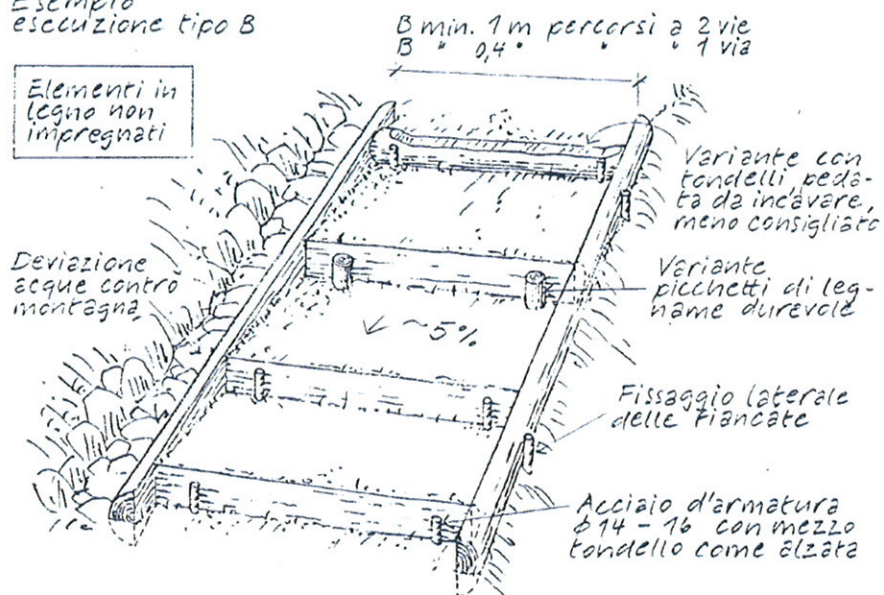 Esempio
esecuzione tipo B
B min. 1 m percorsi a 2 vie
B " 0,4 " " " 1 via
Elementi in
legno non
impregnati
Variante con
tondelli, peda-
ta da incavare,
meno consigliato
Deviazione
acque contro
montagna
Variante
picchetti di leg-
name durevole
~5%
Fissaggio laterale
delle fiancate
Acciaio d'armatura
ϕ 14 - 16 con mezzo
tondello come alzata